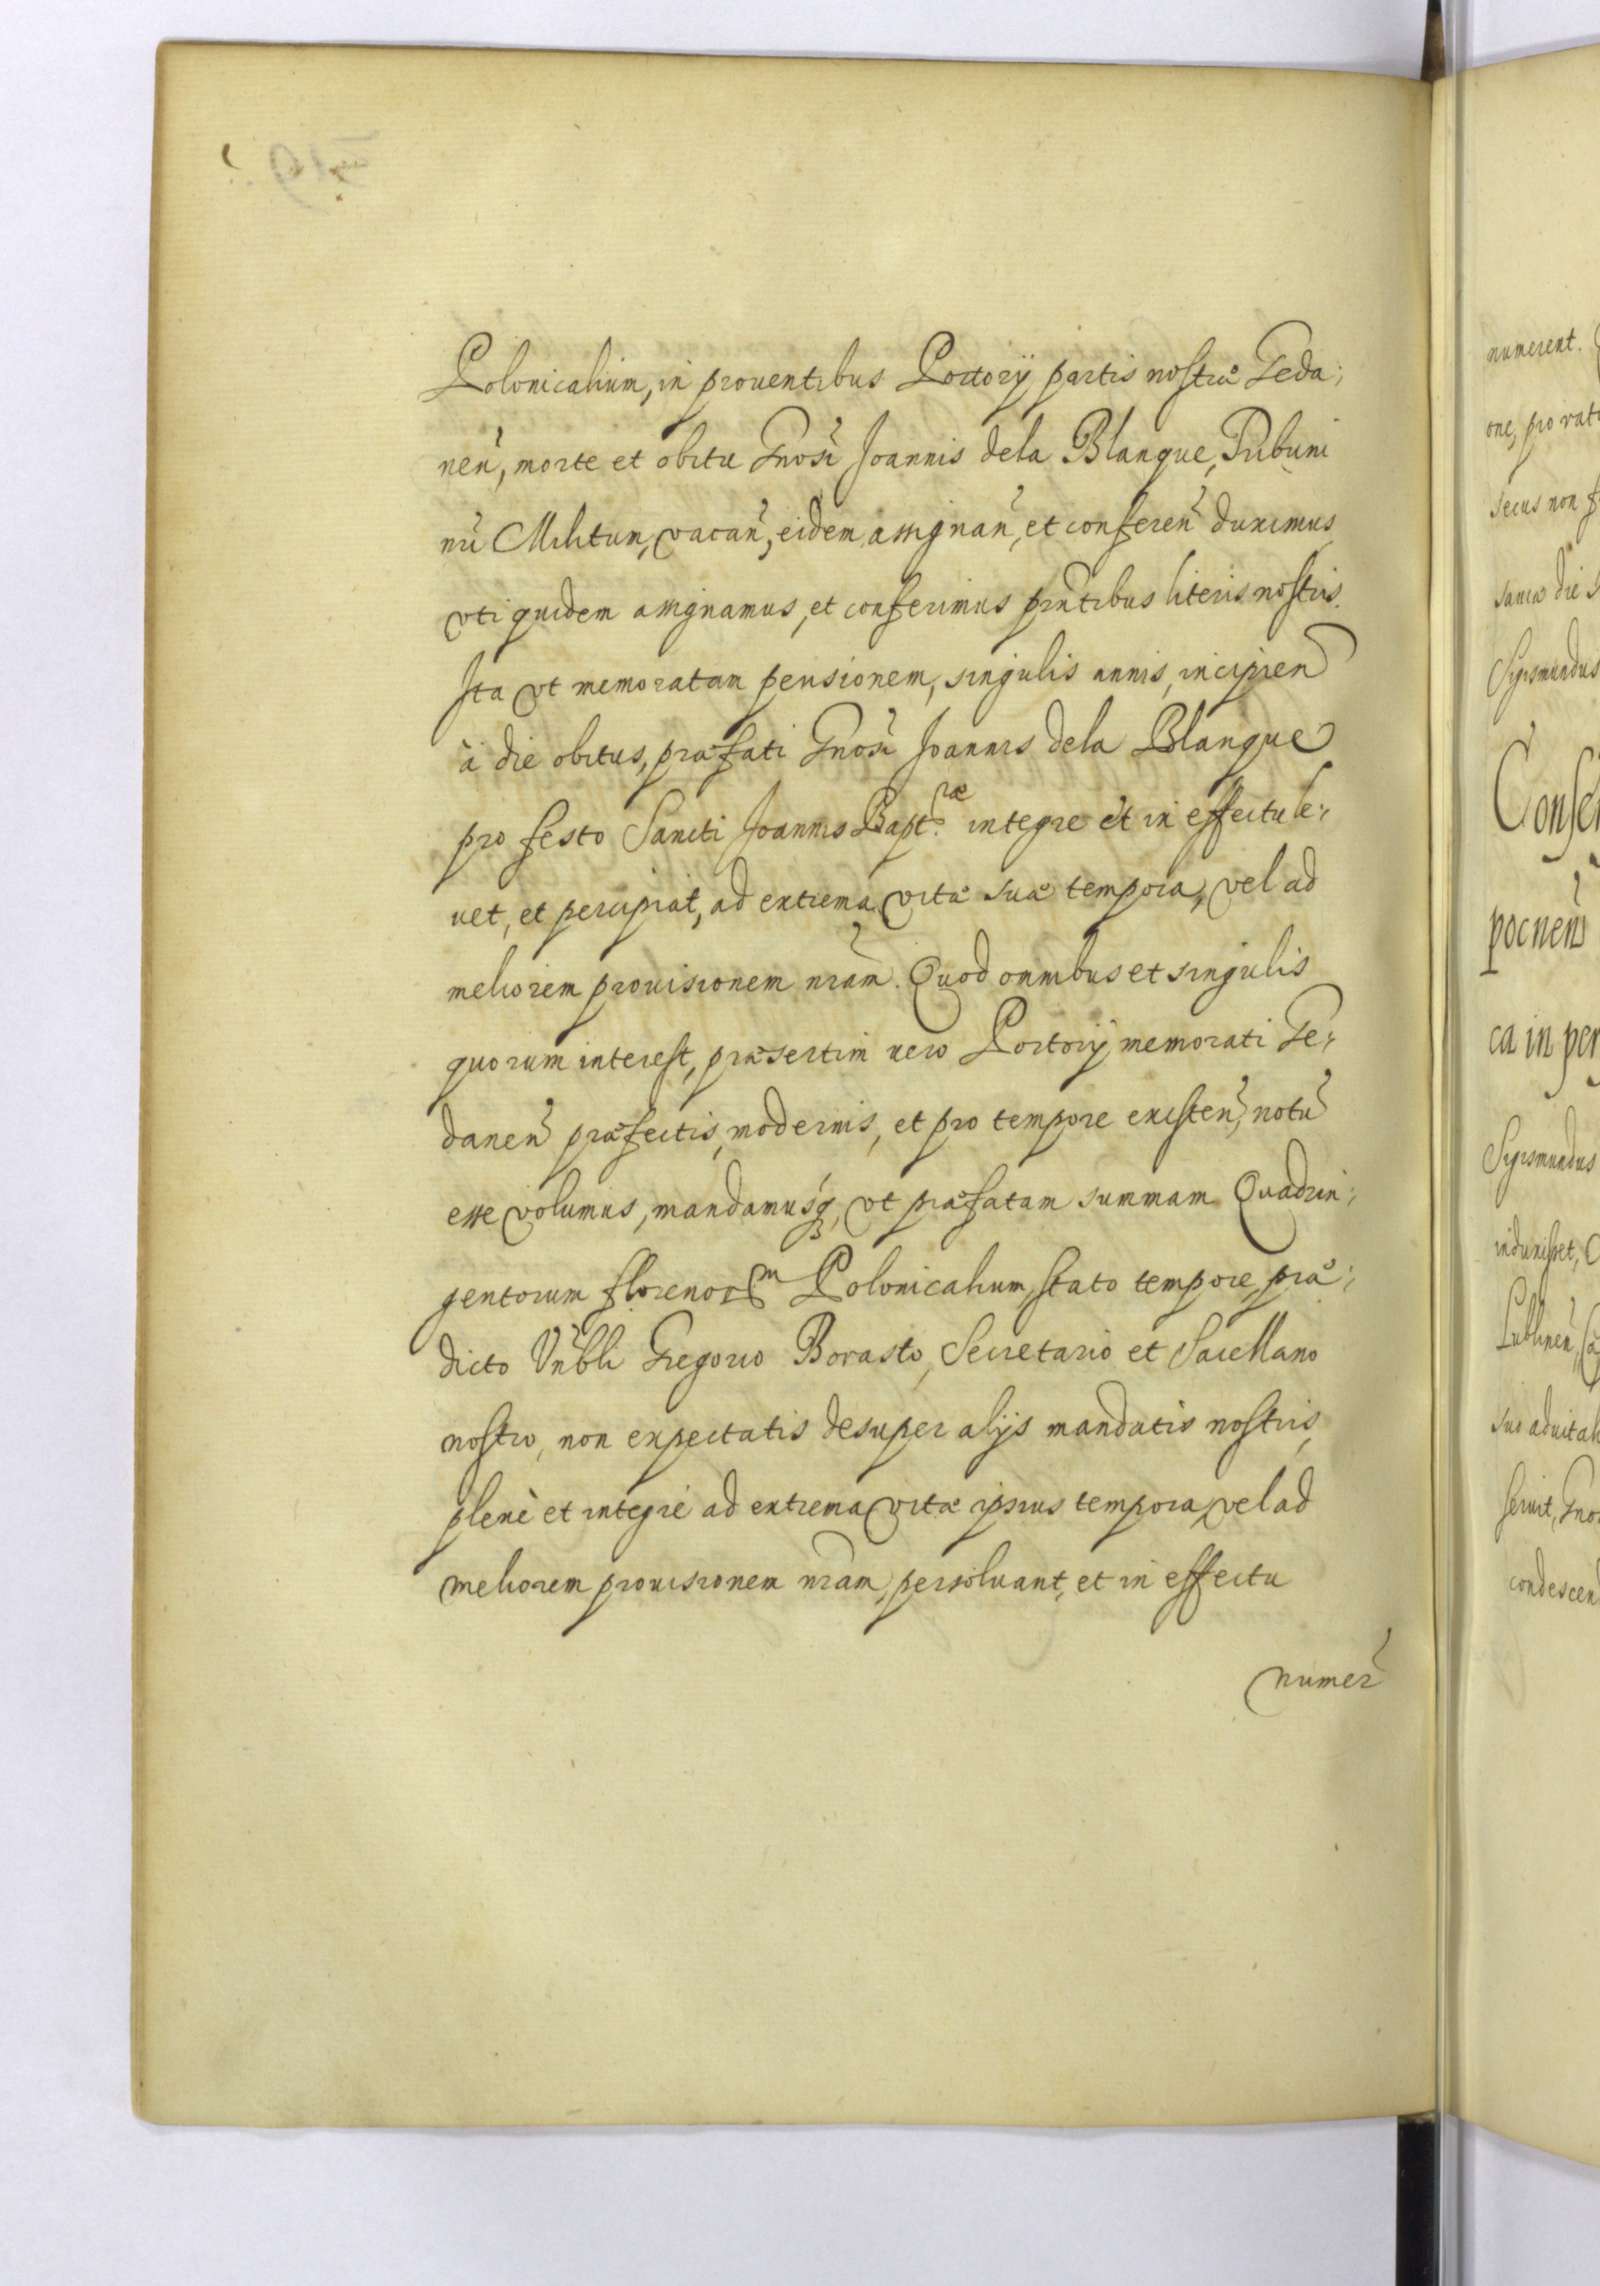 Polonicalium, in prouentibus Portorij partis nostræ Geda:
nen̄, morte et obitu Gnosi Joannis dela Blanque, Tribuni
nri Militum, vacan̄, eidem assignan̄, et conferen̄ duximus
vti quidem assignamus, et conferimus pn̄tibus literis nostris.
Ita vt memoratam pensionem, singulis annis, incipien̄
à die obitus, præfati Gnosi Joannis dela Blanque
pro festo Sancti Joannis Bapt:æ integre et in effectu le:
uet, et percipiat, ad extrema vitæ suæ tempora, vel ad
meliorem prouisionem nr̄am. Quod omnibus et singulis
quorum interest, præsertim uero Portorij memorati Ge:
danen̄ præfectis, modernis, et pro tempore existen̄, notū
esse volumus, mandamusq, vt præfatam summam Quadrin:
gentorum florenorm Polonicalium, stato tempore, præ:
dicto Vn̄bli Gregorio Borasto, Secretario et Sacellano
nostro, non expectatis desuper alijs mandatis nostris,
plenè et integrè ad extrema vitæ ipsius tempora, vel ad
meliorem prouisionem nr̄am, persoluant, et in effectu
numer̄
numerent.
one, pro rati
secus non f
Sigismundus
Conse
pocnen̄
ca in per
Sigismundus
induxisset,
Lublinen̄,
condescen